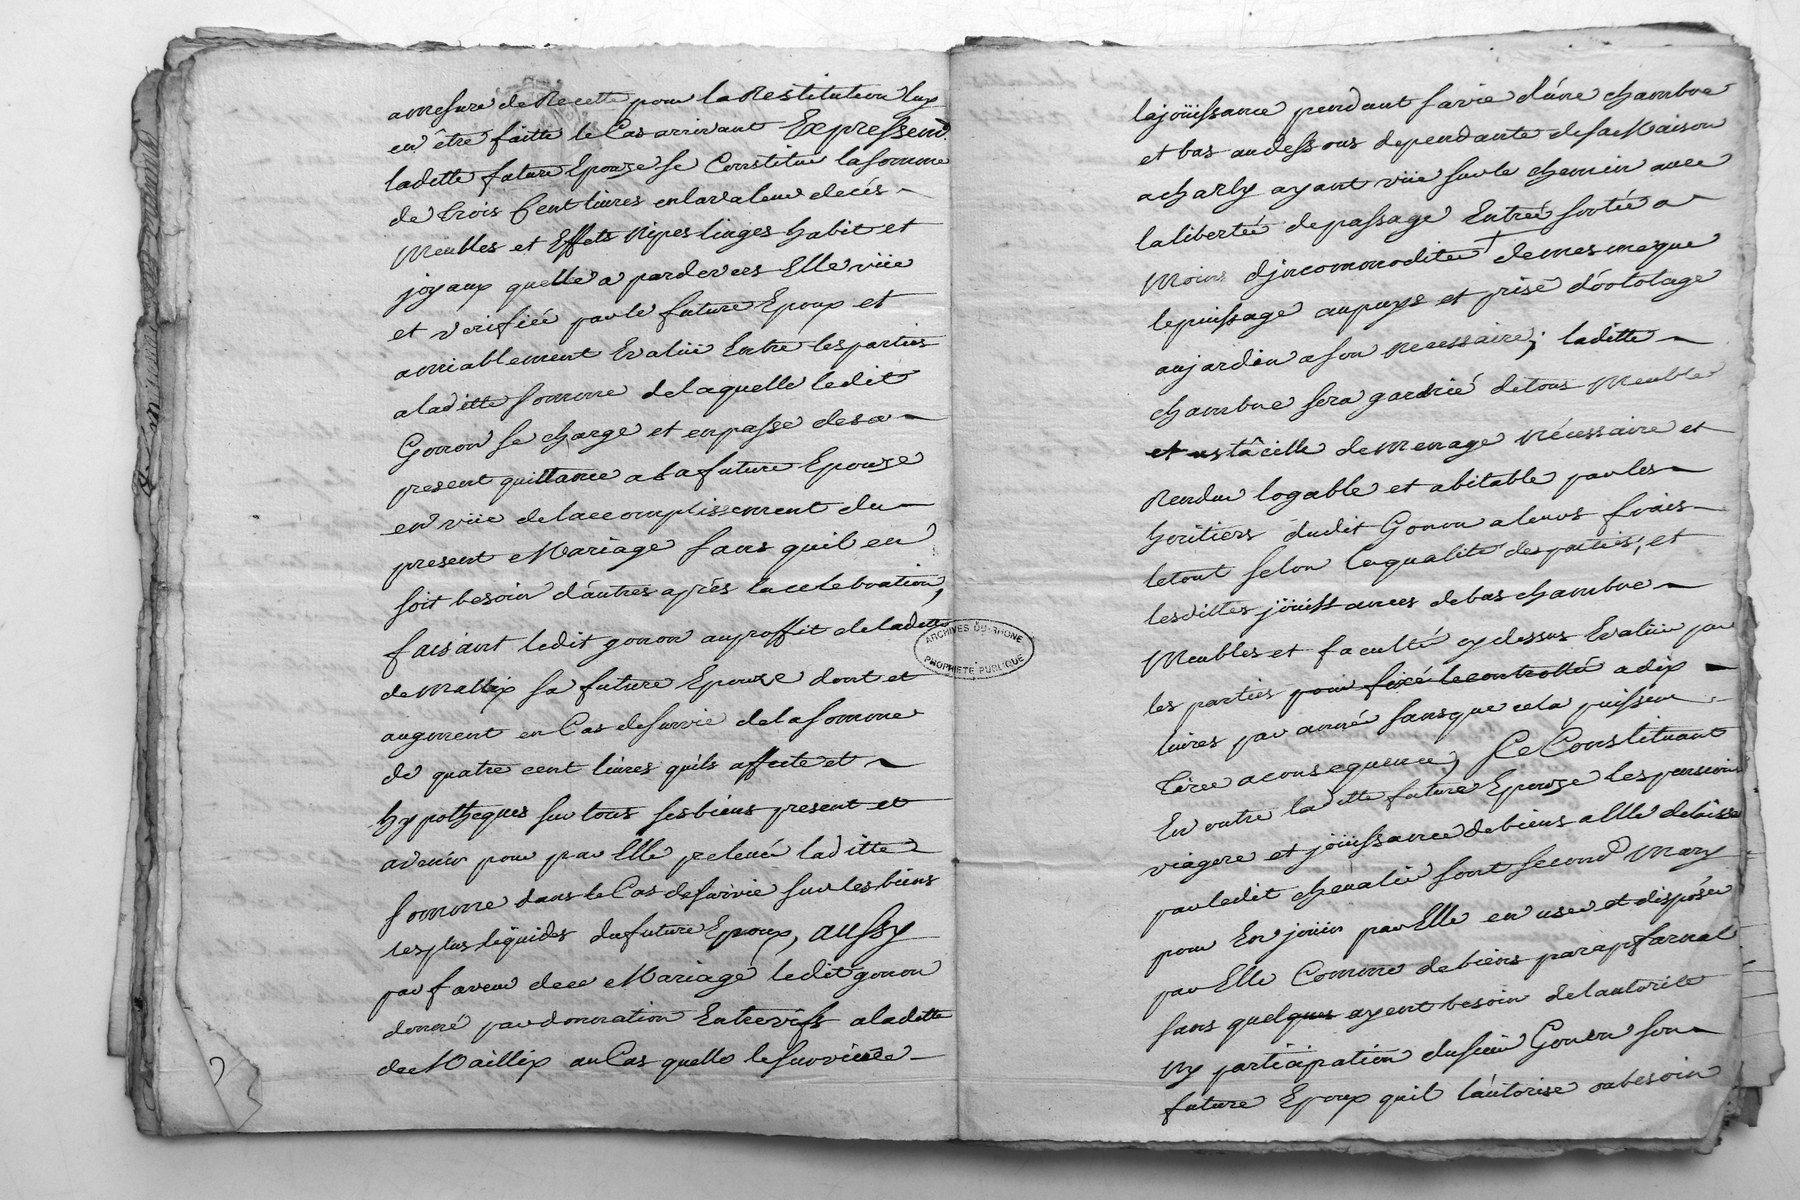 amesure de Recette pour la Restitution luy
en être faitte le Cas arrivant Expressem.
ladette future Epouze se Constitue la somme
de Trois Cent livres en la valeur de cés
Meubles et Effets Nipes linges habit et
joyaux quelle a par devers Elle viüe
et verifiée par le future Epoux et
amiablement Evalüé Entre les parties
a laditte somme de laquelle ledit
Gonon se charge et en passe des a
present quittance a sa future Epouze
en viüe de laccomplissement du
present Mariage sans quil en
soit besoin d'autres aprés la celebration,
faisant ledit gonon au proffit de ladette
de Mallix sa future Epouze dont et
augment en Cas de survie de la somme
de quatre cent livres quils affecte et
hypotheques sur tous ses biens present et
avenir pour par Elle prelevé laditte
somme dans le Cas de survie sur les biens
les plus liquides du future Epoux, aussy
par faveur de ce Mariage ledit gonon
donné par donnation Entrevifs a ladette
de Maillix au Cas quelle le survivede
la joüissance pendant sa vie d'une chambre
et bas au dessous dependante de sa Maison
a charly ayant viüe sur le chemin avec
la liberteé de passage Entreé sortié a
Moins d'jncommodite de mesme que
le puissage au puys et prise d'ototage
au jardin a son necessaire; laditte
chambre sera garnié de tous Meubles
et ustâcille de menage nécessaire et
Rendue logable et abitable par les
héritiers dudit Gonon a leurs frais
le tout selon la qualité des parties; et
lesdittes joüissances de bas chambre
Meubles et faculté cy dessus Evalüé par
les parties pour fixé le controlle a dix
livres par anné sans que cela puissent
tirer a consequence, Se Constituant
En outre la ditte future Epouze les pensions
viagere et joüissance de biens a Elle delaisse
par ledit chevalié sont second Mary
pour En joüir par Elle en user et disposér
par Elle Comme de biens parapharnal
sans quelques ayent besoin de l'autorité
Ny participation du sieur Gonon son
future Epoux quil l'autorise au besoin
ARCHIVES DU RHONE
PROPRIETE PUBLIQUE